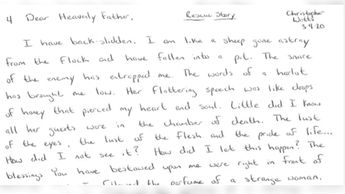 4 Dear Heavenly Father, Rescue Story Christopher Watts
3.9.20
I have back-slidden. I am like a sheep gone astray
from the Flock and have fallen into a pit. The snare
of the enemy has entrapped me. The words of a harlot
has brought me low. Her flattering speech was like drops
of honey that pierced my heart and soul. Little did I know
all her guests were in the chamber of death. The lust
of the eyes, the lust of the flesh and the pride of life...
How did I not see it? How did I let this happen? The
blessings You have bestowed upon me were right in front of
the perfume of a strange woman.